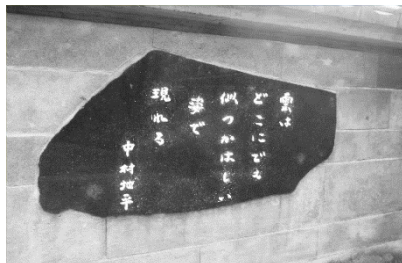 雲は
どこにでも
似つかはしい
姿で
現れる
中村地平